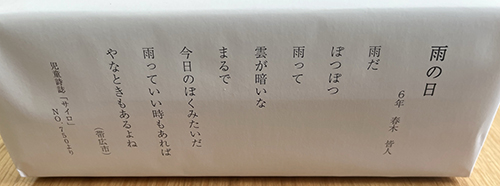 雨の日
6年 春木 皆人
雨だ
ぽつぽつ
雨って
雲が暗いな
まるで
今日のぼくみたいだ
雨っていい時もあれば
やなときもあるよね
(帯広市)
児童詩誌「サイロ」
NO.750より